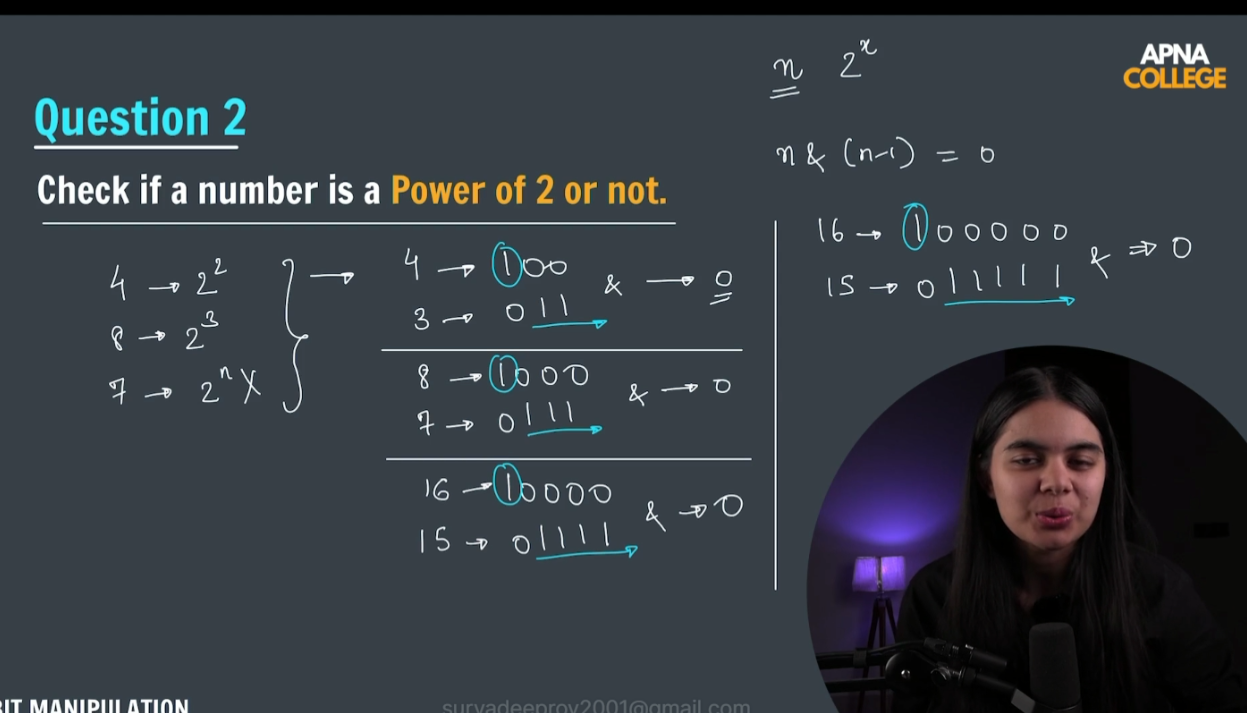 n 2^x
APNA
COLLEGE
Question 2
n & (n-1) = 0
Check if a number is a Power of 2 or not.
4 → 2^2
8 → 2^3
7 → 2^n X
→
4 → 100
3 → 011
& → 0
8 → 1000
7 → 0111
& → 0
16 → 10000
15 → 01111
& → 0
16 → 100000
15 → 011111
& ⇒ 0
BIT MANIPULATION
suryadeeproy2001@gmail.com